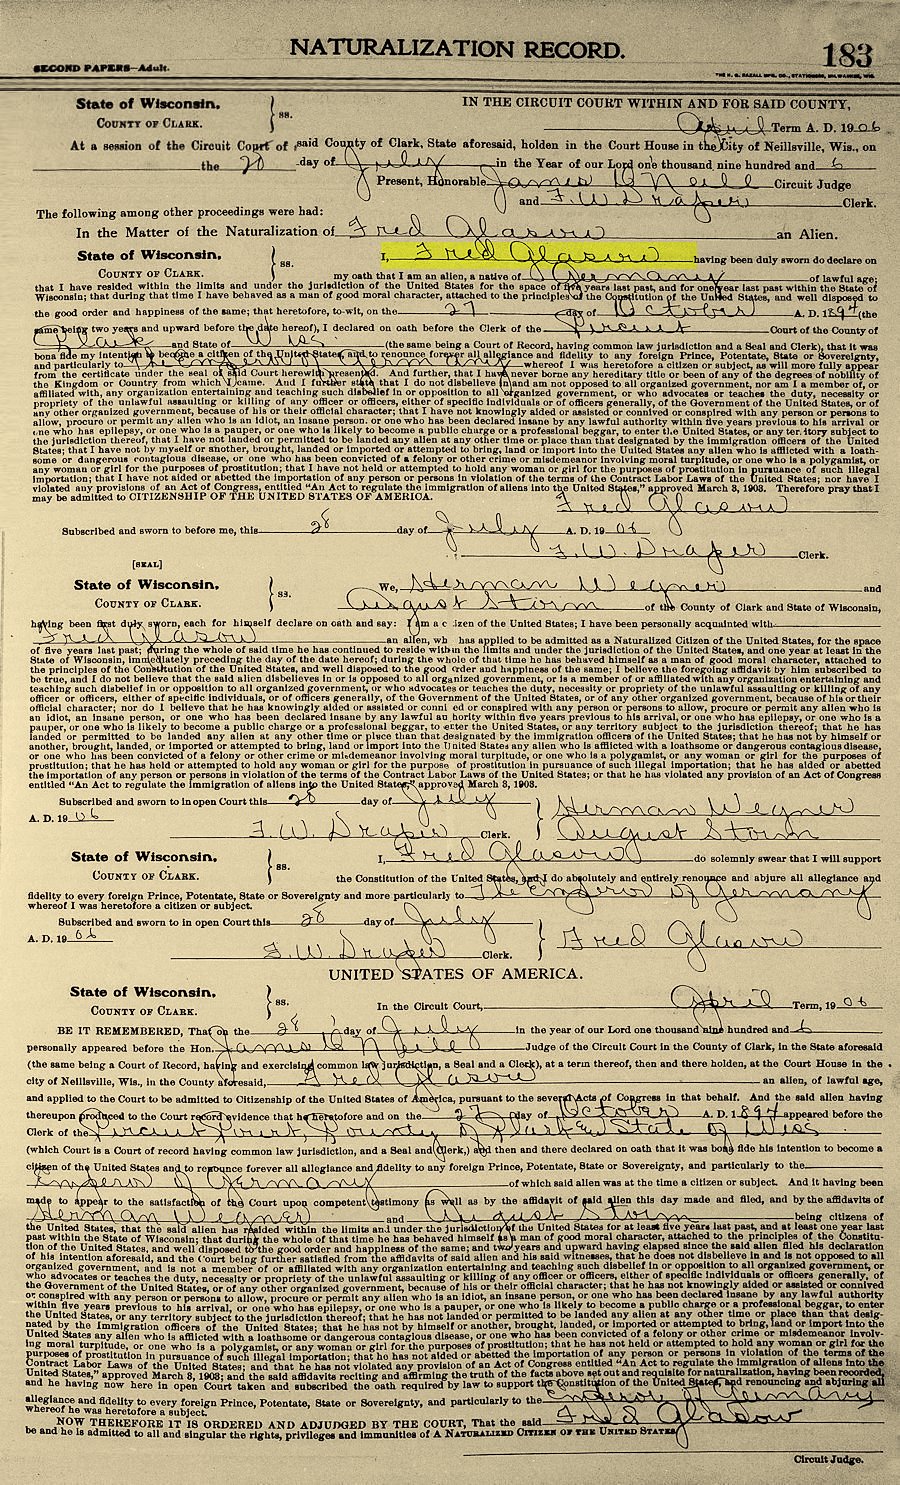 NATURALIZATION RECORD. 183
SECOND PAPERS—Adult.
State of Wisconsin, IN THE CIRCUIT COURT WITHIN AND FOR SAID COUNTY,
COUNTY OF CLARK. ss. April Term A. D. 1906
At a session of the Circuit Court of said County of Clark, State aforesaid, holden in the Court House in the City of Neillsville, Wis., on
the 20 day of July in the Year of our Lord one thousand nine hundred and 6
Present, Honorable James O'Neill Circuit Judge
and F. W. Draper Clerk.
The following among other proceedings were had:
In the Matter of the Naturalization of Fred Glasow an Alien.
State of Wisconsin, I, Fred Glasow having been duly sworn do declare on
COUNTY OF CLARK. ss. my oath that I am an alien, a native of Germany of lawful age;
that I have resided within the limits and under the jurisdiction of the United States for the space of five years last past, and for one year last past within the State of
Wisconsin; that during that time I have behaved as a man of good moral character, attached to the principles of the Constitution of the United States, and well disposed to
the good order and happiness of the same; that heretofore, to-wit, on the 27 day of October A. D. 1897 (the
same being two years and upward before the date hereof), I declared on oath before the Clerk of the Circuit Court of the County of
Clark and State of Wiss. (the same being a Court of Record, having common law jurisdiction and a Seal and Clerk), that it was
bona fide my intention to become a citizen of the United States and to renounce forever all allegiance and fidelity to any foreign Prince, Potentate, State or Sovereignty,
and particularly to The Emperor of Germany whereof I was heretofore a citizen or subject, as will more fully appear
from the certificate under the seal of said Court herewith presented. And further, that I have never borne any hereditary title or been of any of the degrees of nobility of
the Kingdom or Country from which I came. And I further state that I do not disbelieve in and am not opposed to all organized government, nor am I a member of, or
affiliated with, any organization entertaining and teaching such disbelief in or opposition to all organized government, or who advocates or teaches the duty, necessity or
propriety of the unlawful assaulting or killing of any officer or officers, either of specific individuals, or of officers generally, of the Government of the United States, or of
any other organized government, because of his or their official character; that I have not knowingly aided or assisted or connived or conspired with any person or persons to
allow, procure or permit any alien who is an idiot, an insane person, or one who has been declared insane by any lawful authority within five years previous to his arrival or
one who has epilepsy, or one who is a pauper, or one who is likely to become a public charge or a professional beggar, to enter the United States, or any territory subject to
the jurisdiction thereof, that I have not landed or permitted to be landed any alien at any other time or place than that designated by the immigration officers of the United
States; that I have not by myself or another, brought, landed or imported or attempted to bring, land or import into the United States any alien who is afflicted with a loath-
some or dangerous contagious disease, or one who has been convicted of a felony or other crime or misdemeanor involving moral turpitude, or one who is a polygamist, or
any woman or girl for the purposes of prostitution; that I have not held or attempted to hold any woman or girl for the purposes of prostitution in pursuance of such illegal
importation; that I have not aided or abetted the importation of any person or persons in violation of the terms of the Contract Labor Laws of the United States; nor have I
violated any provisions of an Act of Congress, entitled “An Act to regulate the immigration of aliens into the United States,” approved March 3, 1903. Therefore pray that I
may be admitted to CITIZENSHIP OF THE UNITED STATES OF AMERICA.
Fred Glasow
Subscribed and sworn to before me, this 28 day of July A. D. 1906
F. W. Draper Clerk.
[SEAL]
State of Wisconsin, We, Herman Wegner and
COUNTY OF CLARK. ss. August Storm of the County of Clark and State of Wisconsin,
having been first duly sworn, each for himself declare on oath and say: I am a citizen of the United States; I have been personally acquainted with
Fred Glasow an alien, who has applied to be admitted as a Naturalized Citizen of the United States, for the space
of five years last past; during the whole of said time he has continued to reside within the limits and under the jurisdiction of the United States, and one year at least in the
State of Wisconsin, immediately preceding the day of the date hereof; during the whole of that time he has behaved himself as a man of good moral character, attached to
the principles of the Constitution of the United States, and well disposed to the good order and happiness of the same; I believe the foregoing affidavit by him subscribed to
be true, and I do not believe that the said alien disbelieves in or is opposed to all organized government, or is a member of or affiliated with any organization entertaining and
teaching such disbelief in or opposition to all organized government, or who advocates or teaches the duty, necessity or propriety of the unlawful assaulting or killing of any
officer or officers, either of specific individuals, or of officers generally, of the Government of the United States, or of any other organized government, because of his or their
official character; nor do I believe that he has knowingly aided or assisted or connived or conspired with any person or persons to allow, procure or permit any alien who is
an idiot, an insane person, or one who has been declared insane by any lawful authority within five years previous to his arrival, or one who has epilepsy, or one who is a
pauper, or one who is likely to become a public charge or a professional beggar, to enter the United States, or any territory subject to the jurisdiction thereof; that he has not
landed or permitted to be landed any alien at any other time or place than that designated by the immigration officers of the United States; that he has not by himself or
another, brought, landed, or imported or attempted to bring, land or import into the United States any alien who is afflicted with a loathsome or dangerous contagious disease,
or one who has been convicted of a felony or other crime or misdemeanor involving moral turpitude, or one who is a polygamist, or any woman or girl for the purposes of
prostitution; that he has not held or attempted to hold any woman or girl for the purpose of prostitution in pursuance of such illegal importation; that he has not aided or abetted
the importation of any person or persons in violation of the terms of the Contract Labor Laws of the United States; or that he has violated any provision of an Act of Congress
entitled “An Act to regulate the immigration of aliens into the United States,” approved March 3, 1903.
Subscribed and sworn to in open Court this 28 day of July Herman Wegner
A. D. 1906 F. W. Draper Clerk. August Storm
State of Wisconsin, I, Fred Glasow do solemnly swear that I will support
COUNTY OF CLARK. ss. the Constitution of the United States, and I do absolutely and entirely renounce and abjure all allegiance and
fidelity to every foreign Prince, Potentate, State or Sovereignty and more particularly to The Emperor of Germany
whereof I was heretofore a citizen or subject.
Subscribed and sworn to in open Court this 28 day of July
A. D. 1906 Fred Glasow
F. W. Draper Clerk.
UNITED STATES OF AMERICA.
State of Wisconsin,
COUNTY OF CLARK. ss. In the Circuit Court, April Term, 1906
BE IT REMEMBERED, That on the 28 day of July in the year of our Lord one thousand nine hundred and 6
personally appeared before the Hon. James O'Neill Judge of the Circuit Court in the County of Clark, in the State aforesaid
(the same being a Court of Record, having and exercising common law jurisdiction, a Seal and a Clerk), at a term thereof, then and there holden, at the Court House in the
city of Neillsville, Wis., in the County aforesaid, Fred Glasow an alien, of lawful age,
and applied to the Court to be admitted to Citizenship of the United States of America, pursuant to the several Acts of Congress in that behalf. And the said alien having
thereupon produced to the Court record evidence that he heretofore and on the 27 day of October A. D. 1897 appeared before the
Clerk of the Circuit Court, County of Clark & State of Wiss
(which Court is a Court of record having common law jurisdiction, and a Seal and Clerk,) and then and there declared on oath that it was bona fide his intention to become a
citizen of the United States and to renounce forever all allegiance and fidelity to any foreign Prince, Potentate, State or Sovereignty, and particularly to the
Emperor of Germany of which said alien was at the time a citizen or subject. And it having been
made to appear to the satisfaction of the Court upon competent testimony as well as by the affidavit of said alien this day made and filed, and by the affidavits of
Herman Wegner and August Storm being citizens of
the United States, that the said alien has resided within the limits and under the jurisdiction of the United States for at least five years last past, and at least one year last
past within the State of Wisconsin; that during the whole of that time he has behaved himself as a man of good moral character, attached to the principles of the Constitu-
tion of the United States, and well disposed to the good order and happiness of the same; and two years and upward having elapsed since the said alien filed his declaration
of his intention aforesaid, and the Court being further satisfied from the affidavits of said alien and his said witnesses, that he does not disbelieve in and is not opposed to all
organized government, and is not a member of or affiliated with any organization entertaining and teaching such disbelief in or opposition to all organized government, or
who advocates or teaches the duty, necessity or propriety of the unlawful assaulting or killing of any officer or officers, either of specific individuals or officers generally, of
the Government of the United States, or of any other organized government, because of his or their official character; that he has not knowingly aided or assisted or connived
or conspired with any person or persons to allow, procure or permit any alien who is an idiot, an insane person, or one who has been declared insane by any lawful authority
within five years previous to his arrival, or one who has epilepsy, or one who is a pauper, or one who is likely to become a public charge or a professional beggar, to enter
the United States, or any territory subject to the jurisdiction thereof; that he has not landed or permitted to be landed any alien at any other time or place than that desig-
nated by the Immigration officers of the United States; that he has not by himself or another, brought, landed, or imported or attempted to bring, land or import into the
United States any alien who is afflicted with a loathsome or dangerous contagious disease, or one who has been convicted of a felony or other crime or misdemeanor involv-
ing moral turpitude, or one who is a polygamist, or any woman or girl for the purposes of prostitution; that he has not held or attempted to hold any woman or girl for the
purposes of prostitution in pursuance of such illegal importation; that he has not aided or abetted the importation of any person or persons in violation of the terms of the
Contract Labor Laws of the United States; and that he has not violated any provision of an Act of Congress entitled “An Act to regulate the immigration of aliens into the
United States,” approved March 3, 1903; and the said affidavits reciting and affirming the truth of the facts above set out and requisite for naturalization, having been recorded,
and he having now here in open Court taken and subscribed the oath required by law to support the Constitution of the United States and renouncing and abjuring all
allegiance and fidelity to every foreign Prince, Potentate, State or Sovereignty, and particularly to the Emperor of Germany
whereof he was heretofore a subject.
NOW THEREFORE IT IS ORDERED AND ADJUDGED BY THE COURT, That the said Fred Glasow
be and he is admitted to all and singular the rights, privileges and immunities of A NATURALIZED CITIZEN OF THE UNITED STATES
Circuit Judge.